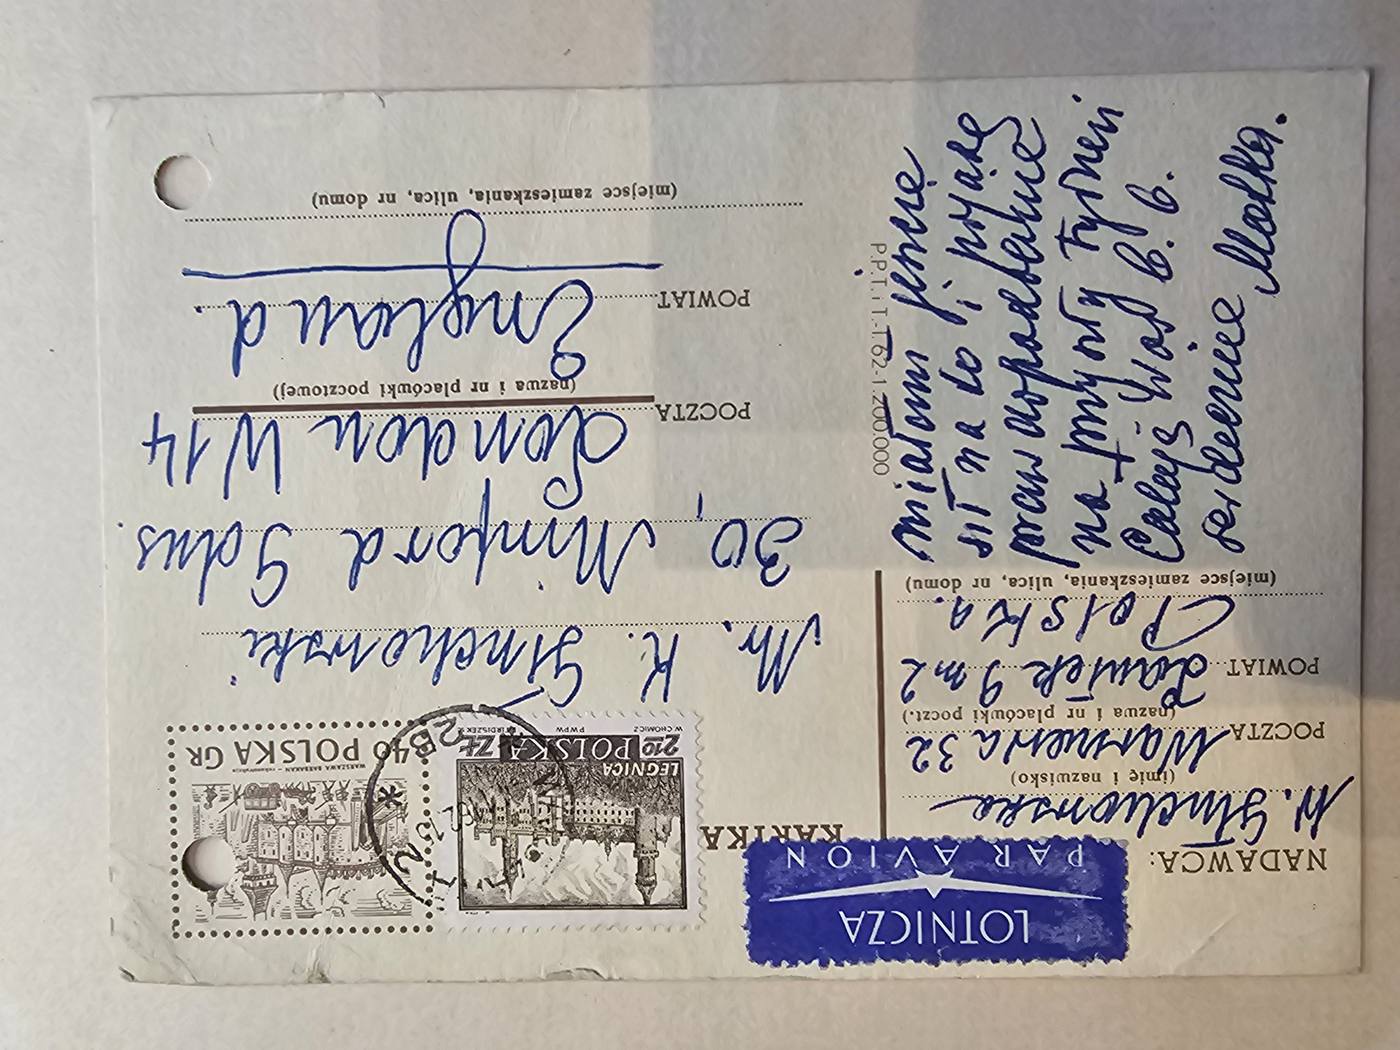 LOTNICZA
PAR AVION
KARTKA
LEGNICA
2,10 POLSKA ZŁ
W. CHOMICZ
PWPW
WARSZAWA BARBAKAN – rekonstrukcja
40 POLSKA GR
NADAWCA:
(imię i nazwisko)
POCZTA Warszawa 32
(nazwa i nr placówki poczt.)
POWIAT Ławek 9 m 2
Polska.
(miejsce zamieszkania, ulica, nr domu)
Mr. K.
30, Minford Gdns.
London W 14
POCZTA
(nazwa i nr placówki pocztowej)
England
POWIAT
(miejsce zamieszkania, ulica, nr domu)
P.P.T. i T.-T.62-1.200.000
miałam
sił na to i przyjadę
prawdopodobnie
na przyszły tydzień
Całuję Was b. b.
serdecznie Matka.